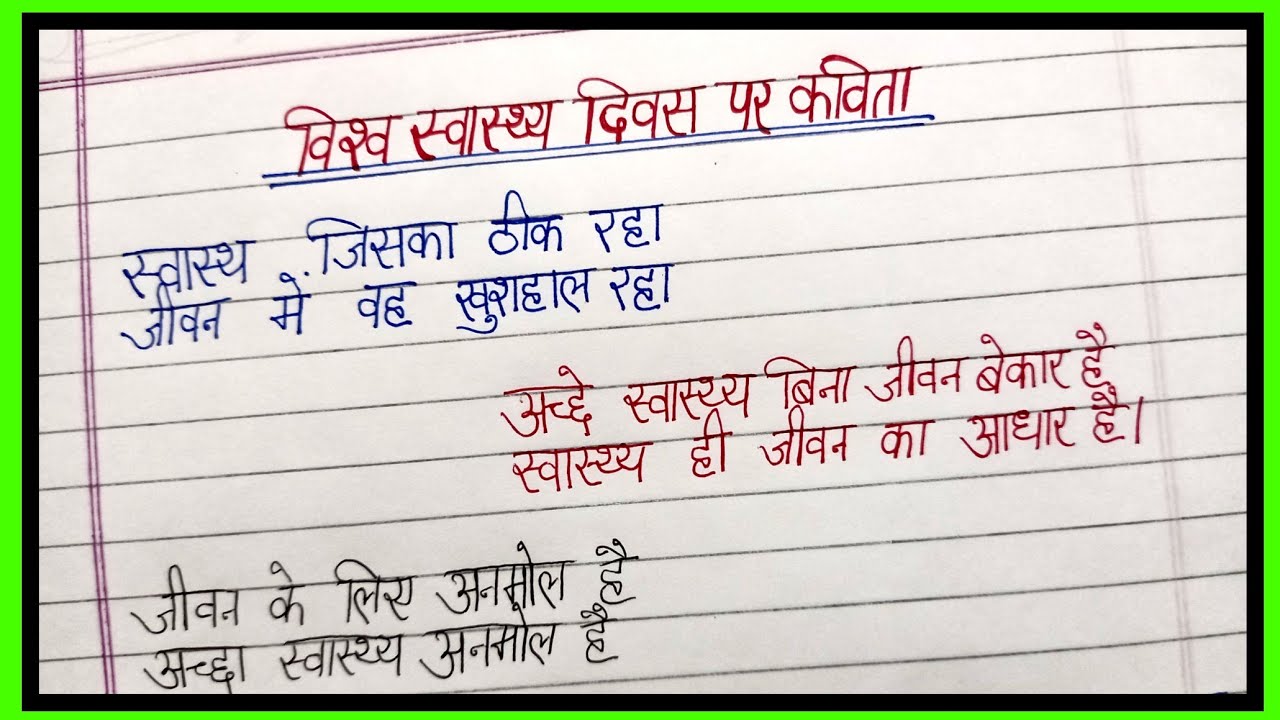 विश्व स्वास्थ्य दिवस पर कविता
स्वास्थ जिसका ठीक रहा
जीवन में वह खुशहाल रहा
अच्छे स्वास्थ्य बिना जीवन बेकार है
स्वास्थ्य ही जीवन का आधार है।
जीवन के लिए अनमोल है
अच्छा स्वास्थ्य अनमोल है